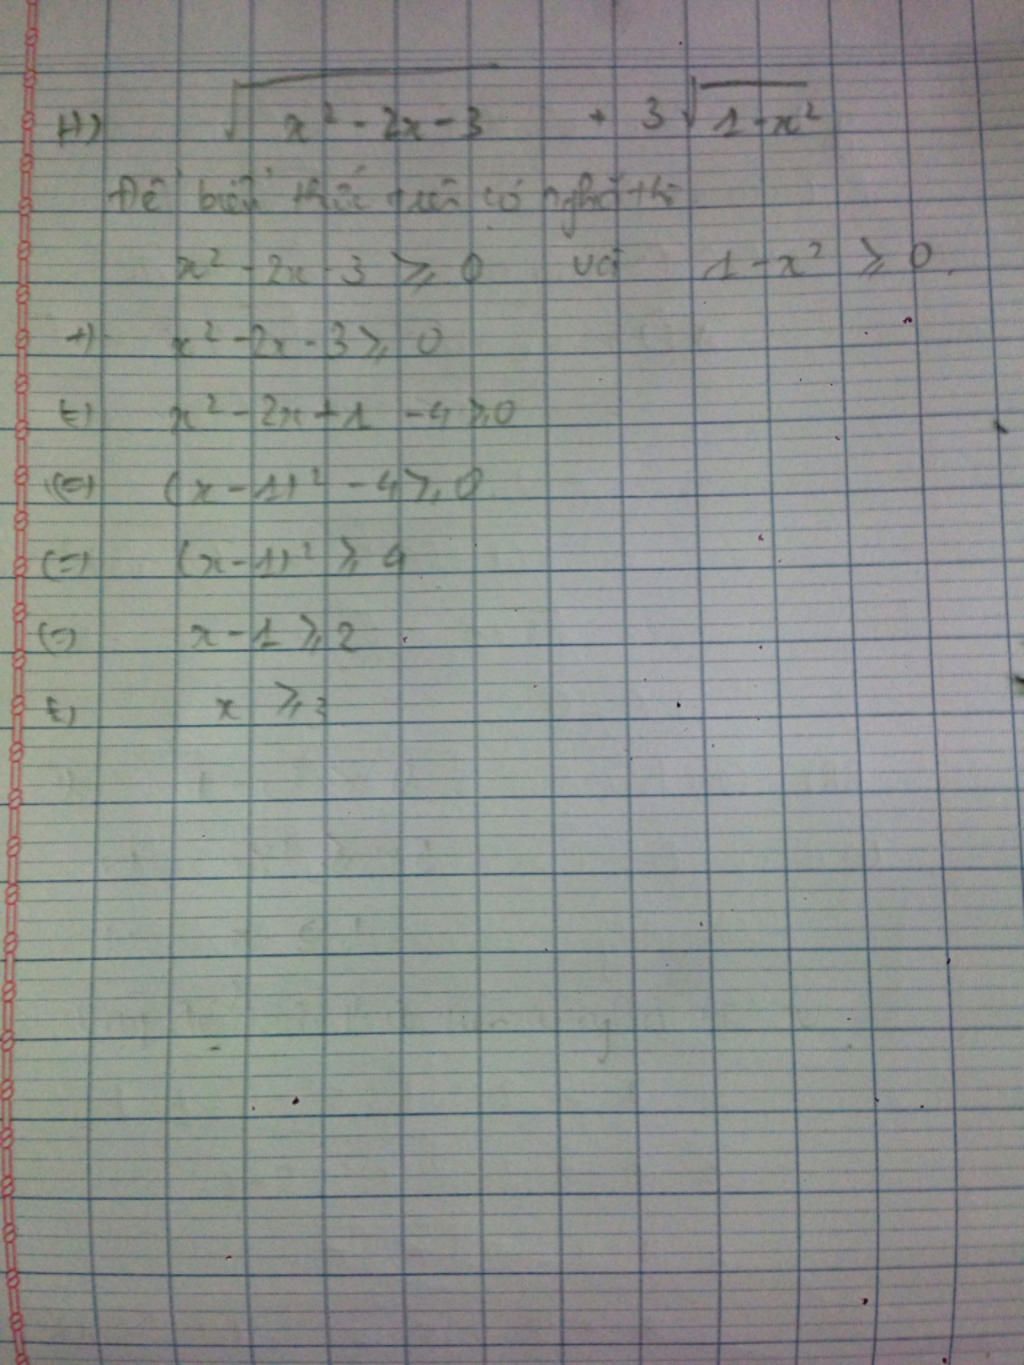 H) √(x² - 2x - 3) + 3√(1 - x²)
Để biểu thức trên có nghĩa thì
x² - 2x - 3 ⩾ 0 và 1 - x² ⩾ 0.
+) x² - 2x - 3 ⩾ 0
(=) x² - 2x + 1 - 4 ⩾ 0
(=) (x - 1)² - 4 ⩾ 0
(=) (x - 1)² ⩾ 4
(=) x - 1 ⩾ 2
(=) x ⩾ 3